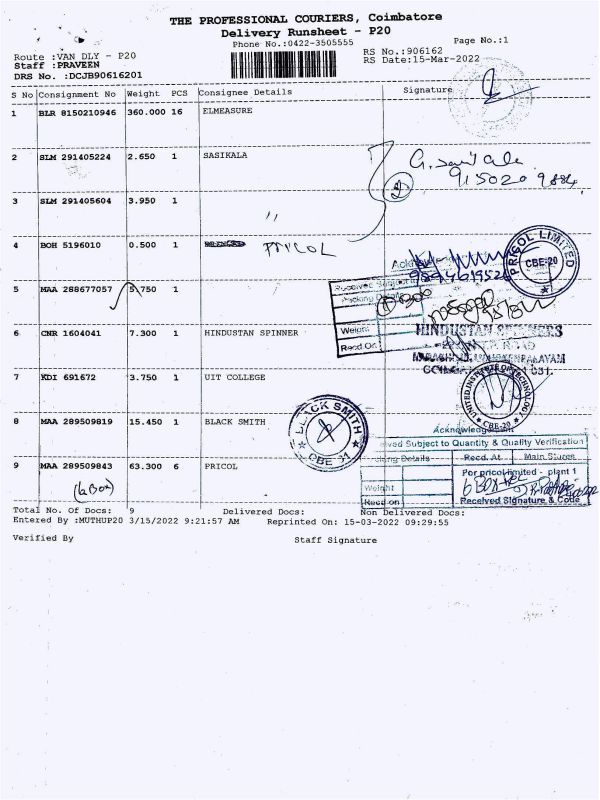 THE PROFESSIONAL COURIERS, Coimbatore
Delivery Runsheet - P20
Phone No.:0422-3505555
Page No.:1
Route :VAN DLY - P20
RS No.:906162
Staff :PRAVEEN
RS Date:15-Mar-2022
DRS No. :DCJB90616201
S No Consignment No Weight PCS Consignee Details Signature
1 BLR 8150210946 360.000 16 ELMEASURE
2 SLM 291405224 2.650 1 SASIKALA
3 SLM 291405604 3.950 1 "
4 BOH 5196010 0.500 1 PRICOL
PRICOL LIMITED
CBE-20
5 MAA 288677057 5.750 1
Weight
Recd On
6 CNR 1604041 7.300 1 HINDUSTAN SPINNER
HINDUSTAN SPINNERS
7 KDI 691672 3.750 1 UIT COLLEGE
UNITED INSTITUTE OF TECHNOLOGY
CBE-20
8 MAA 289509819 15.450 1 BLACK SMITH
BLACK SMITH
CBE 31
Subject to Quantity & Quality Verification
Details Recd. At Main Stores
9 MAA 289509843 63.300 6 PRICOL
(6 Box)
For pricol limited - plant 1
Weight
Recd on
Received Signature & Code
Total No. Of Docs: 9 Delivered Docs: Non Delivered Docs:
Entered By :MUTHUP20 3/15/2022 9:21:57 AM Reprinted On: 15-03-2022 09:29:55
Verified By Staff Signature